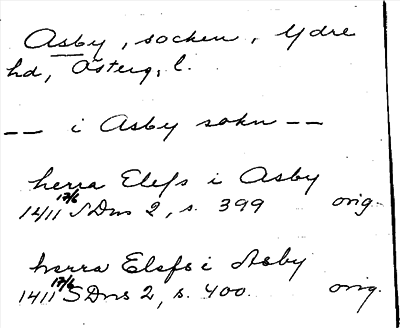 Asby, socken, Ydre
hd, Österg, l.
-- i Asby sokn --
herra Elefs i Asby
1411 17/6 SDns 2, s. 399 orig.
herra Elefs i Asby
1411 17/6 SDns 2, s. 400. orig.